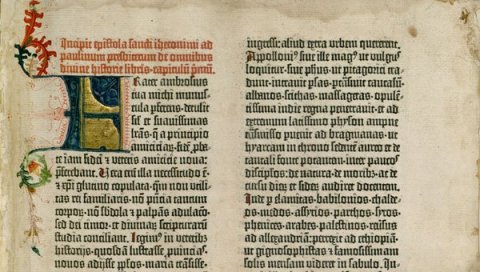 Incipit epistola sancti iheronimi ad
paulinum presbiterum de omnibus
divine historie libris capitulū pᵐū.
Frater ambrosius
tua michi munuſ-
cula pferens· detulit
sił et suavissimas
lrās· q̄ a principio
amiciciaꝝ· fidē pba-
te iam fidei et veteris amicicie nova:
pferebant. Vera eni illa necessitudo ē·
et xpi glutino copulata· quā non vtili-
tas rei familiaris· nō pñcia tantum
corporum· nō sbdola et palpās adulacō·
sed dei timor· et divinaꝝ scripturarū
studia conciliant. Legimꝰ in veterib⁹
historijs· quosdā lustrasse pvincias·
novos adiisse pplos· maria trāsisse·
ingressꝰ· aliud extra urbem quererent.
Appolloniꝰ· sive ille magꝰ ut vulgꝰ
loquitur· sive phus· ut pitagorici tra-
dunt· intravit psas· ptrāsivit caucasū·
albanos· scithas· massagetas· opulē-
tissima indie regna penetravit· et ad
extremum latissimo phison amne
trāsmisso puenit ad bragmanas· ut
hyarcam in throno sedentē aureo et de
tantali fonte potantem· inter pauco⸗
discipłos· de natura· de moribꝫ· ac de
cursu dieꝝ et sideꝝ audiret docentem.
Inde p elamitas· babilonios· chalde-
os· medos· assyrios· parthos· syros·
phenices· arabes· palestinos· reversꝰ
ad alexandriā· perrexit ad ethiopiā·
ut gignosophistas et famosissimam
solis mensam videret in sabulo. In-